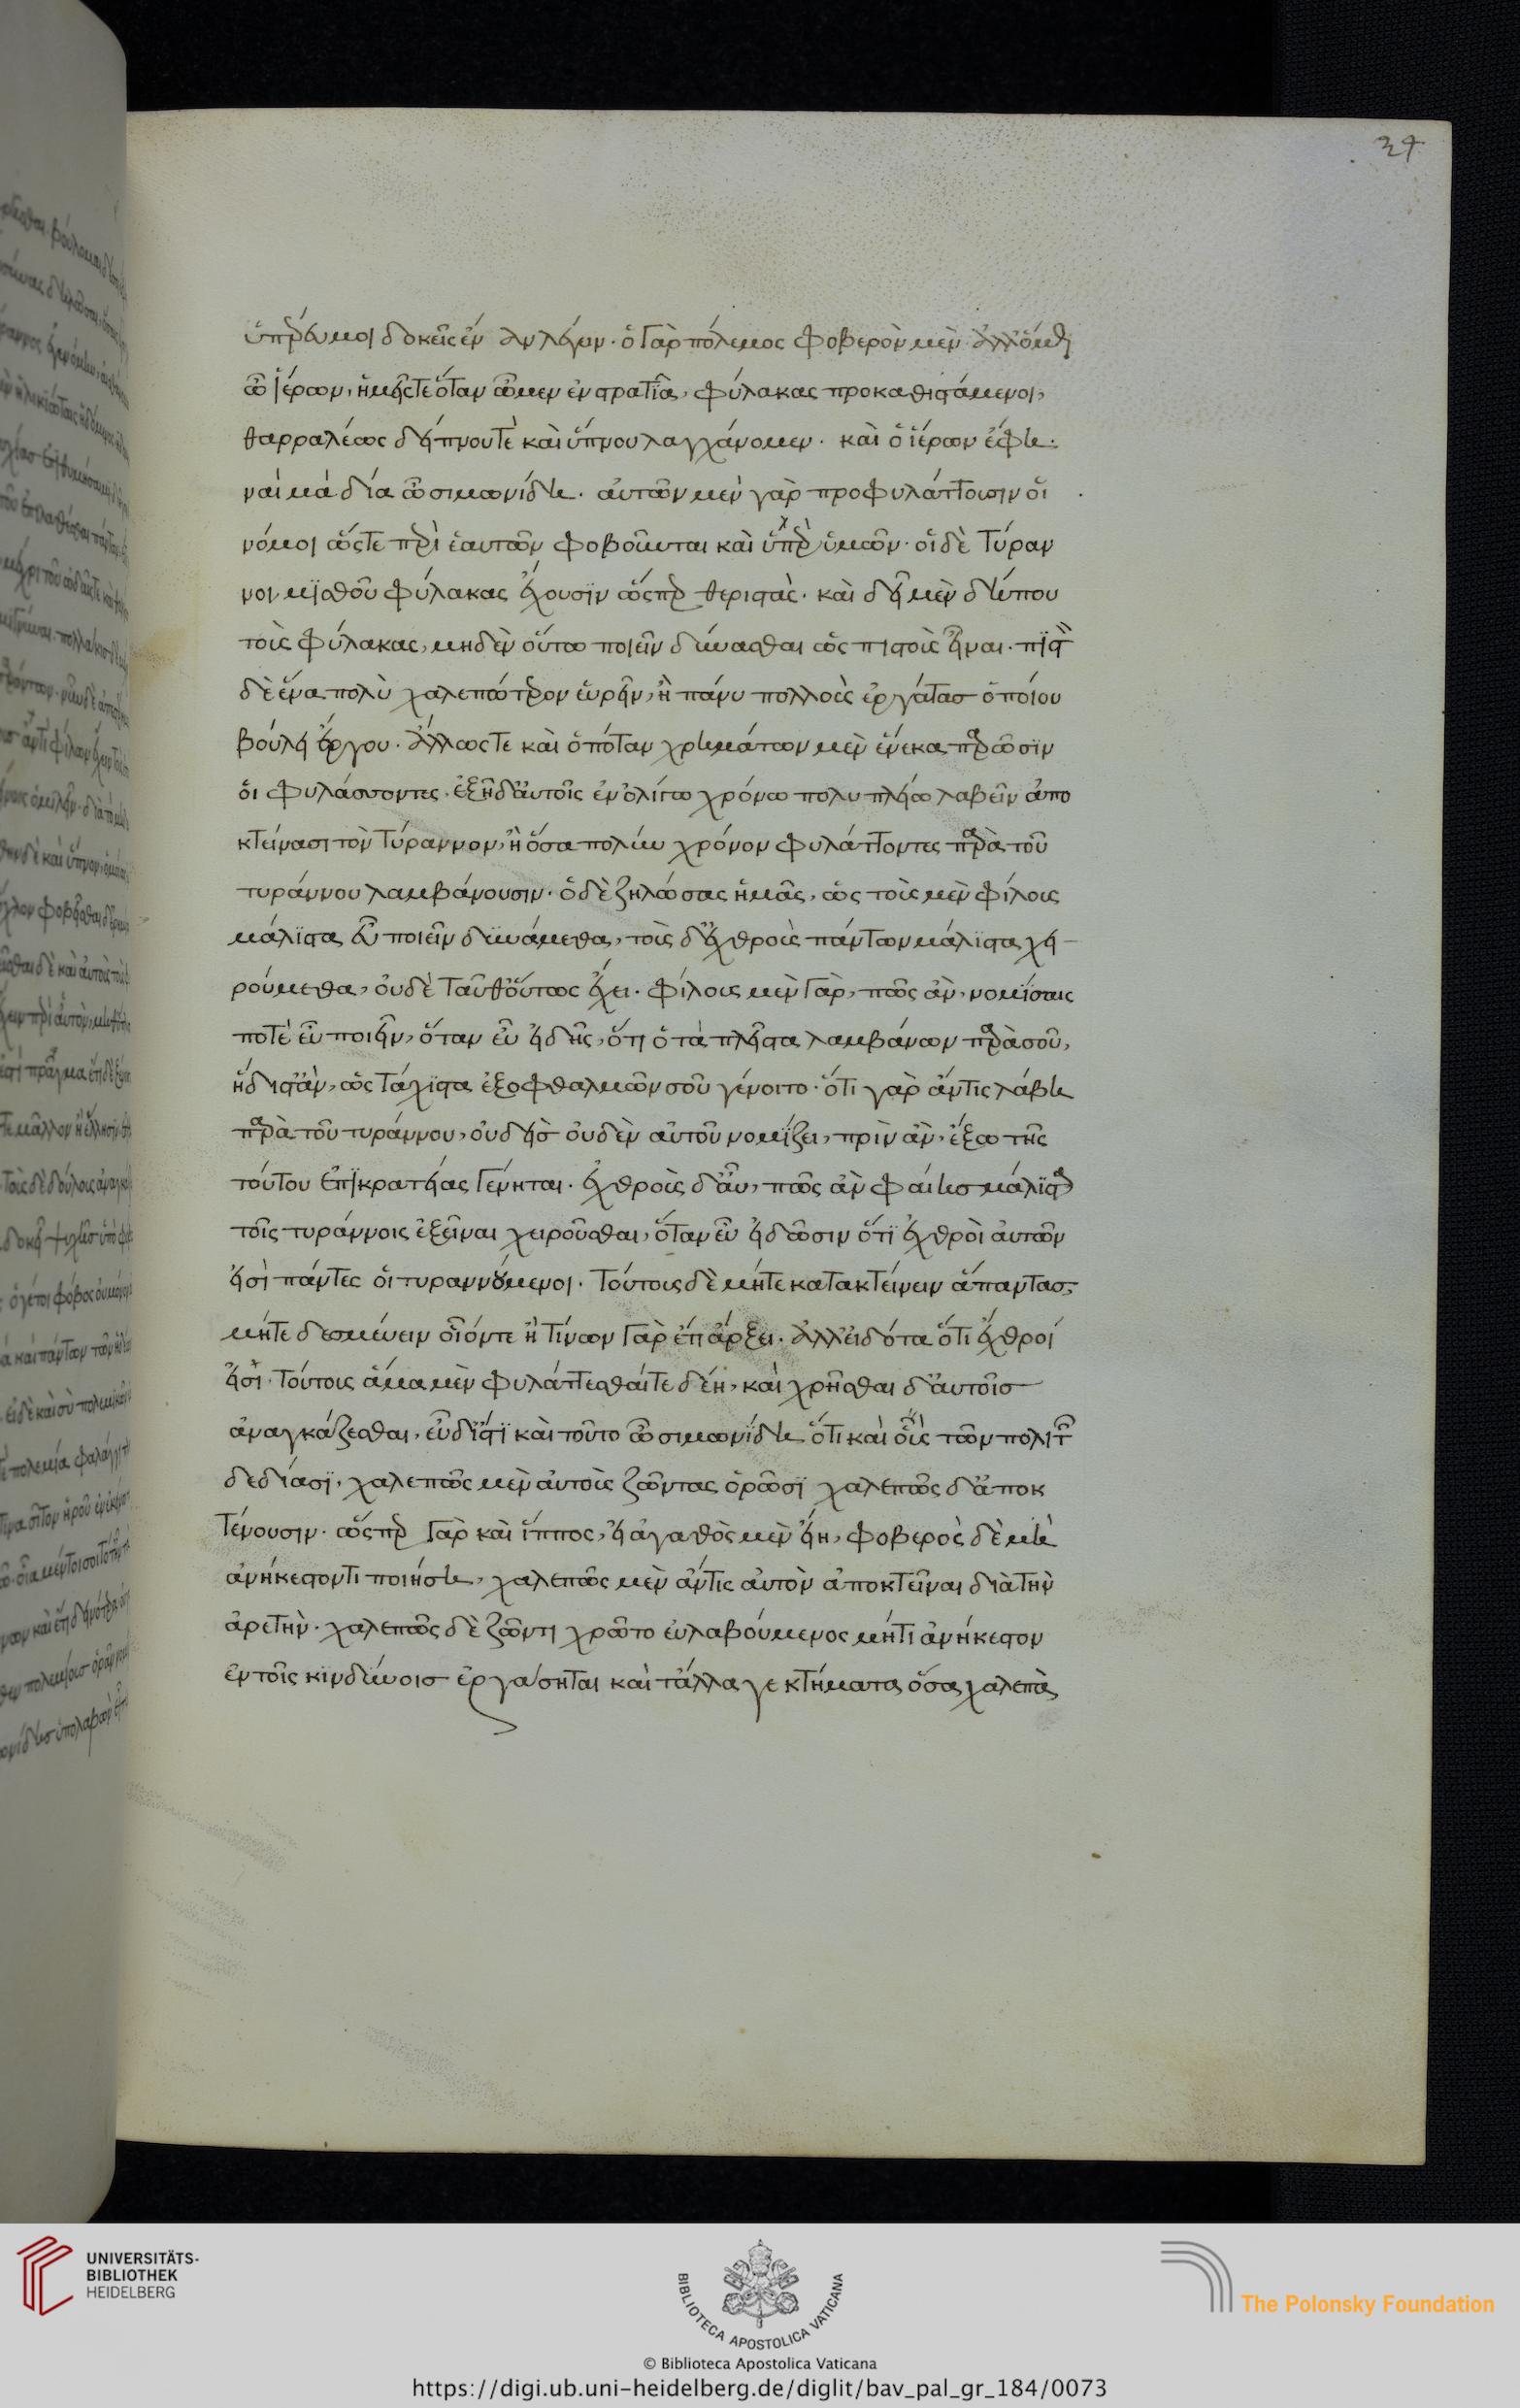 34
ὑπέρευ μοι δοκεῖς ἐν ἂν λέγειν. ὁ γὰρ πόλεμος φοβερὸν μὲν ἀλλ' ὅμως
ὦ ἱέρων, ἡμεῖς τε ὅταν ὦμεν ἐν στρατιᾷ, φύλακας προκαθιστάμενοι,
θαρραλέως δείπνου τὲ καὶ ὕπνου λαγχάνομεν. καὶ ὁ ἱέρων ἔφη.
ναὶ μὰ δία ὦ σιμωνίδη. αὐτῶν μὲν γὰρ προφυλάττουσιν οἱ
νόμοι ὥστε περὶ ἑαυτῶν φοβοῦνται καὶ ὑπὲρ ὑμῶν. οἱ δὲ τύραν
νοι μισθοῦ φύλακας ἔχουσιν ὥσπερ θεριστάς. καὶ δεῖ μὲν δήπου
τοὺς φύλακας, μηδὲν οὕτω ποιεῖν δύνασθαι ὡς πιστοὺς εἶναι. πιστὸν
δὲ ἕνα πολὺ χαλεπώτερον εὑρεῖν, ἢ πάνυ πολλοὺς ἐργάτας ὁποίου
βούλει ἔργου. ἄλλως τε καὶ ὁπόταν χρημάτων μὲν ἕνεκα παρῶσιν
οἱ φυλάσσοντες. ἐξῇ δ' αὐτοῖς ἐν ὀλίγῳ χρόνῳ πολυ πλείω λαβεῖν ἀπο
κτείνασι τὸν τύραννον, ἢ ὅσα πολὺν χρόνον φυλάττοντες παρὰ τοῦ
τυράννου λαμβάνουσιν. ὃ δὲ ζηλώσας ἡμᾶς, ὡς τοὺς μὲν φίλους
μάλιστα εὖ ποιεῖν δυνάμεθα, τοὺς δ' ἐχθροὺς πάντων μάλιστα χει
ρούμεθα, οὐδὲ ταῦθ' οὕτως ἔχει. φίλους μὲν γὰρ, πῶς ἂν, νομίσαις
ποτὲ εὖ ποιεῖν, ὅταν εὖ εἰδῇς, ὅτι ὁ τὰ πλεῖστα λαμβάνων παρὰ σοῦ,
ἥδιστ' ἂν, ὡς τάχιστα ἐξ ὀφθαλμῶν σοῦ γένοιτο. ὅτι γὰρ ἄν τις λάβῃ
παρὰ τοῦ τυράννου, οὐδεὶς οὐδὲν αὐτοῦ νομίζει, πρὶν ἂν, ἔξω τῆς
τούτου ἐπικρατείας γένηται. ἐχθροὺς δ' ἂν, πῶς ἂν φαίης μάλιστα
τοῖς τυράννοις ἐξεῖναι χειροῦσθαι, ὅταν εὖ εἰδῶσιν ὅτι ἐχθροὶ αὐτῶν
εἰσὶ πάντες οἱ τυραννούμενοι. τούτους δὲ μήτε κατακτείνειν ἅπαντας,
μήτε δεσμεύειν οἷόντε ᾖ τίνων γὰρ ἔτι ἄρξει. ἀλλ' εἰδότα ὅτι ἐχθροί
εἰσι. τούτους ἅμα μὲν φυλάττεσθαί τε δέῃ, καὶ χρῆσθαι δ' αὐτοῖς
ἀναγκάζεσθαι, εὖ δ' ἴσθι καὶ τοῦτο ὦ σιμωνίδη ὅτι καὶ οὓς τῶν πολιτῶν
δεδίασι, χαλεπῶς μὲν αὐτοὺς ζῶντας ὁρῶσι χαλεπῶς δ' ἀποκ
τένουσιν. ὥσπερ γὰρ καὶ ἵππος, εἰ ἀγαθὸς μὲν εἴη, φοβερὸς δὲ μὴ
ἀνήκεστόν τι ποιήσῃ, χαλεπῶς μὲν ἄν τις αὐτὸν ἀποκτεῖναι διὰ τὴν
ἀρετὴν. χαλεπῶς δὲ ζῶντι χρῶτο εὐλαβούμενος μή τι ἀνήκεστον
ἐν τοῖς κινδύνοις ἐργάσηται καὶ τἄλλα γε κτήματα ὅσα χαλεπὰ
UNIVERSITÄTS-
BIBLIOTHEK
HEIDELBERG
BIBLIOTECA APOSTOLICA VATICANA
The Polonsky Foundation
© Biblioteca Apostolica Vaticana
https://digi.ub.uni-heidelberg.de/diglit/bav_pal_gr_184/0073